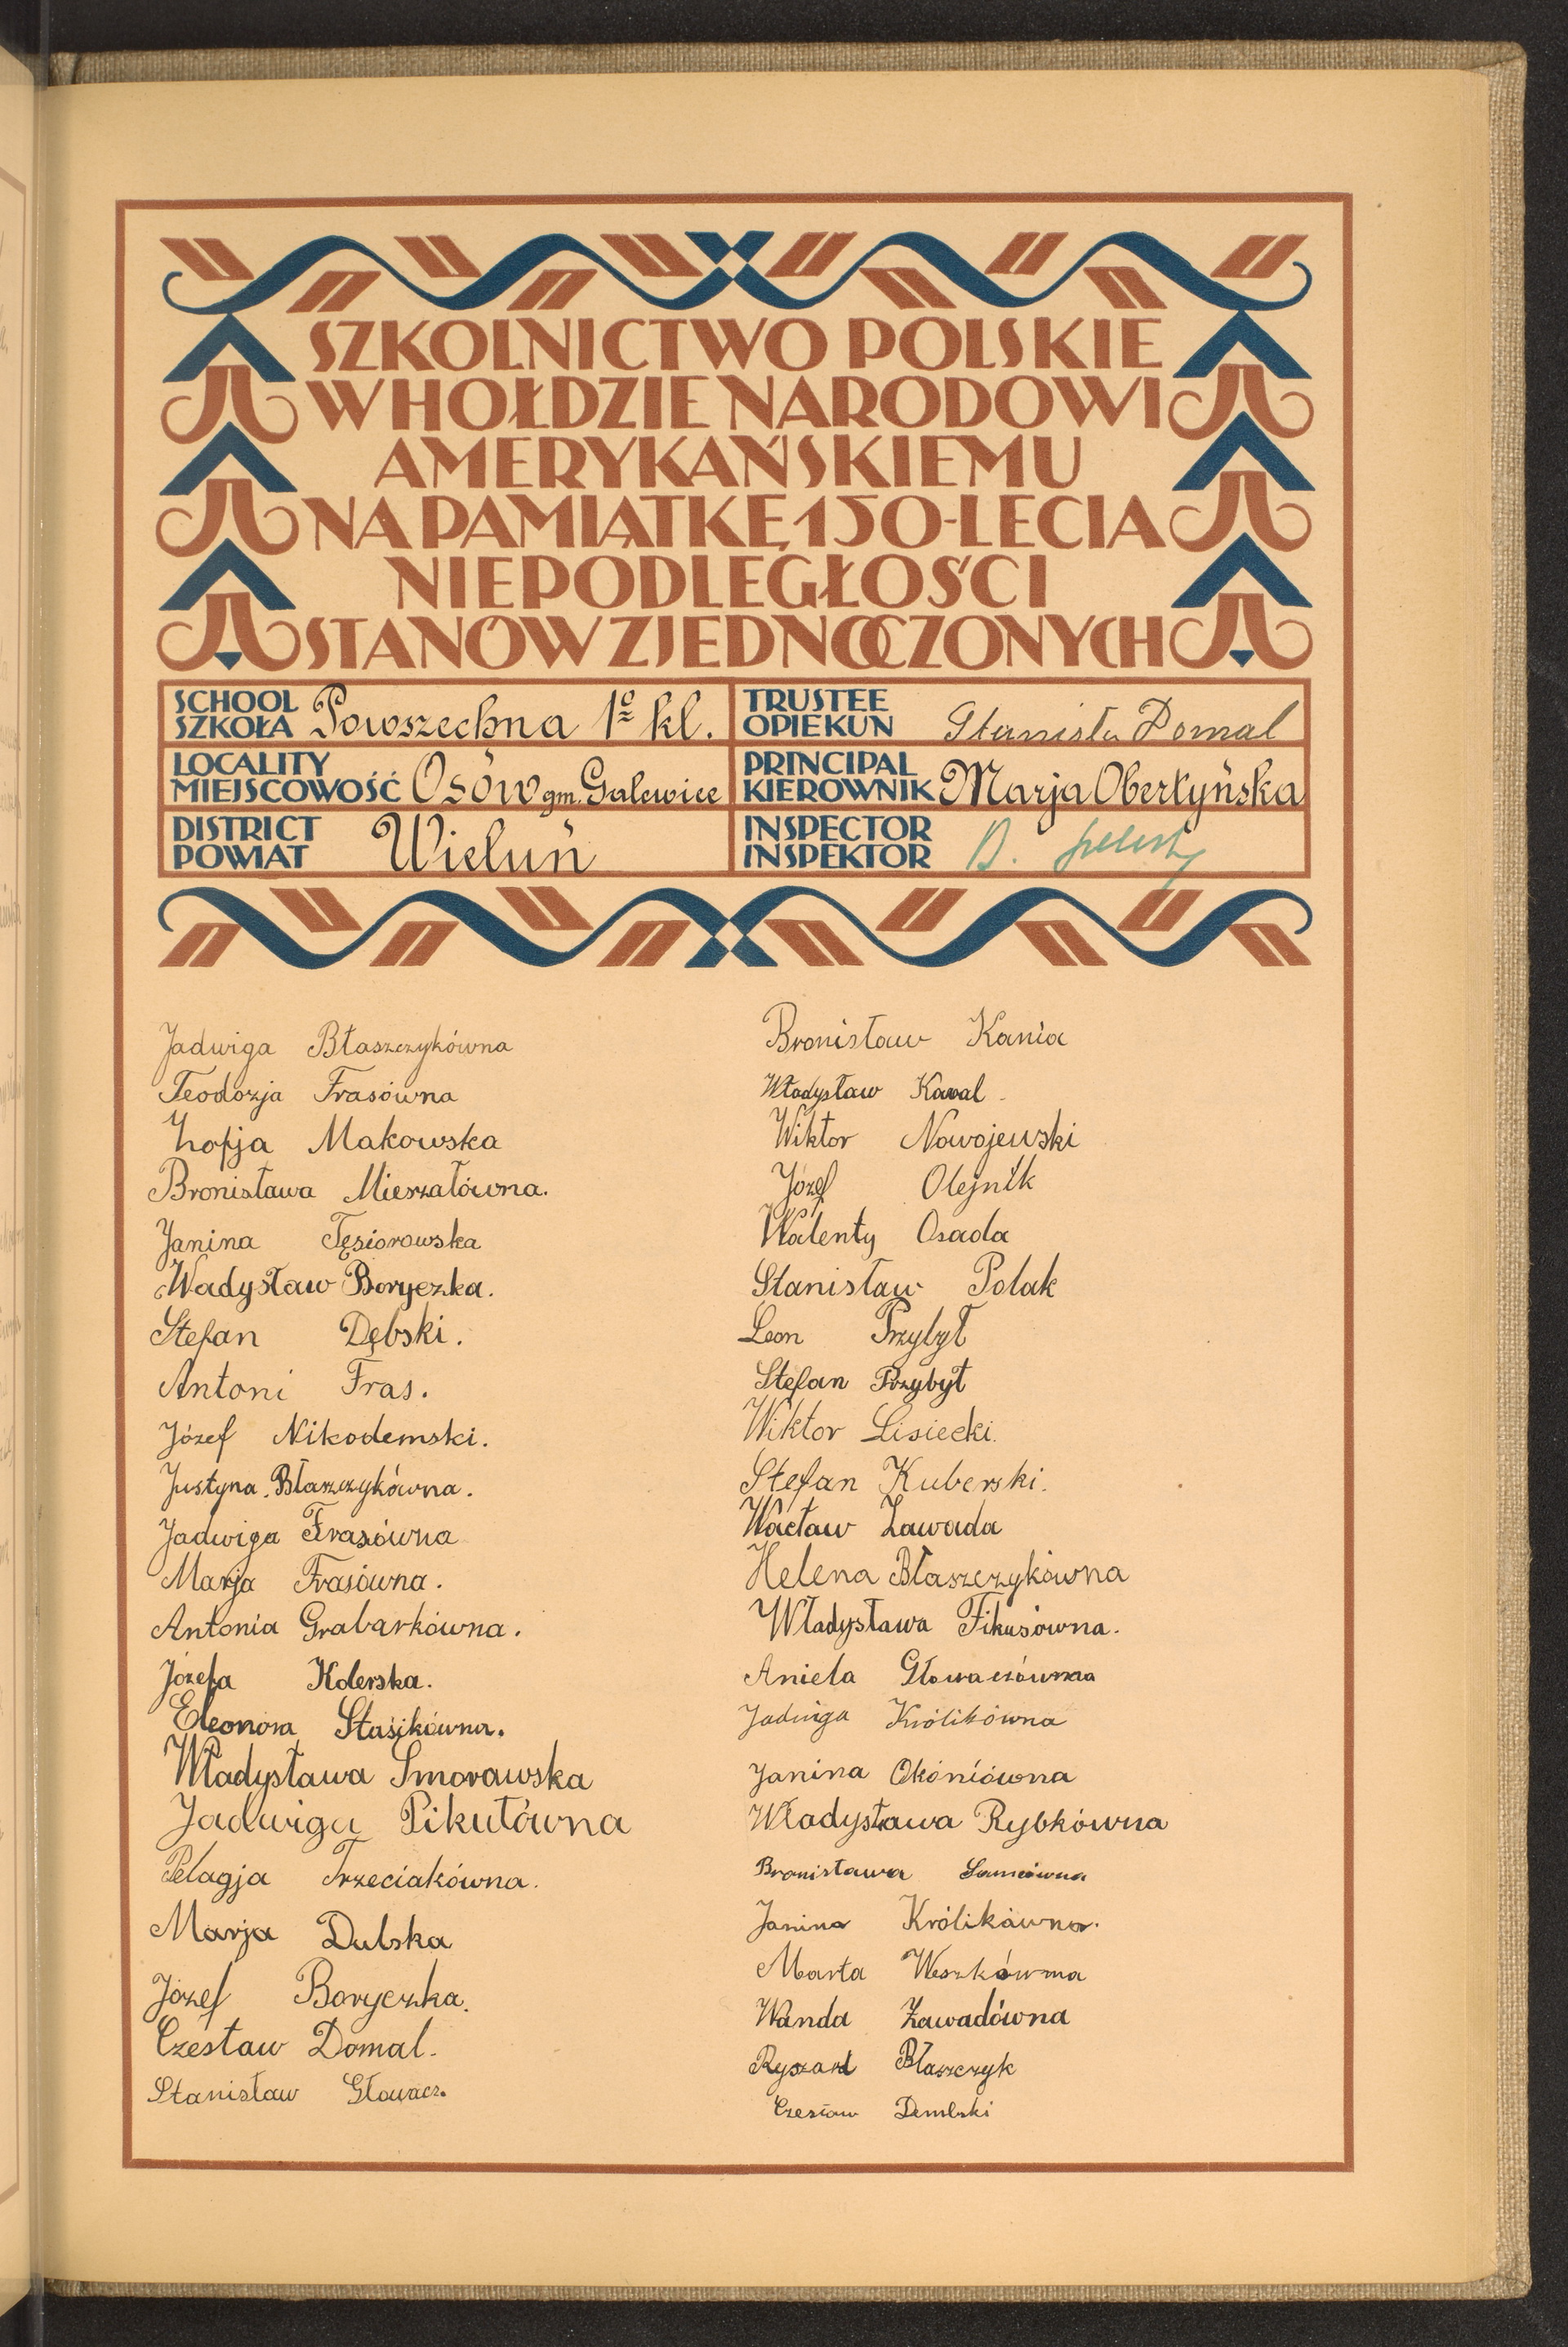 SZKOLNICTWO POLSKIE
W HOŁDZIE NARODOWI
AMERYKAŃSKIEMU
NA PAMIĄTKĘ 150-LECIA
NIEPODLEGŁOŚCI
STANÓW ZJEDNOCZONYCH
SCHOOL
SZKOŁA Powszechna 1º kl.
TRUSTEE
OPIEKUN Stanisła Domal
LOCALITY
MIEJSCOWOŚĆ Osów gm. Galewice
PRINCIPAL
KIEROWNIK Marja Obertyńska
DISTRICT
POWIAT Wieluń
INSPECTOR
INSPEKTOR
Jadwiga Błaszczykówna
Teodozja Frasówna
Zofja Makowska
Bronisława Mieszałówna.
Janina Tęsiorowska
Władysław Boryczka.
Stefan Dębski.
Antoni Fras.
Józef Nikodemski.
Justyna Błaszczykówna.
Jadwiga Frasówna
Marja Frasówna.
Antonia Grabarkówna.
Józefa Kolerska.
Eleonora Stasikówna.
Władysława Smorawska
Jadwiga Pikutówna
Pelagja Trzeciakówna.
Marja Dulska
Józef Boryczka.
Czesław Domal.
Stanisław Głowacz.
Bronisław Kania
Władysław Kawal.
Wiktor Nowojewski
Józef Olejnik
Walenty Osada
Stanisław Polak
Leon Przybył
Stefan Przybył
Wiktor Lisiecki.
Stefan Kuberski.
Wacław Zawada
Helena Błaszczykówna
Władysława Fikusówna.
Aniela Głowaczówna
Jadwiga Królikówna
Janina Okoniówna
Władysława Rybkówna
Bronisława
Janina Królikówna.
Marta Weszkówna
Wanda Zawadówna
Ryszard Błaszczyk
Czesław Dembski